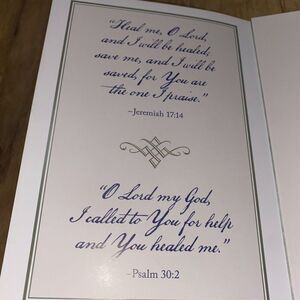 "Heal me, O Lord,
and I will be healed;
save me, and I will be
saved, for You are
the one I praise."
–Jeremiah 17:14
"O Lord my God,
I called to You for help
and You healed me."
–Psalm 30:2